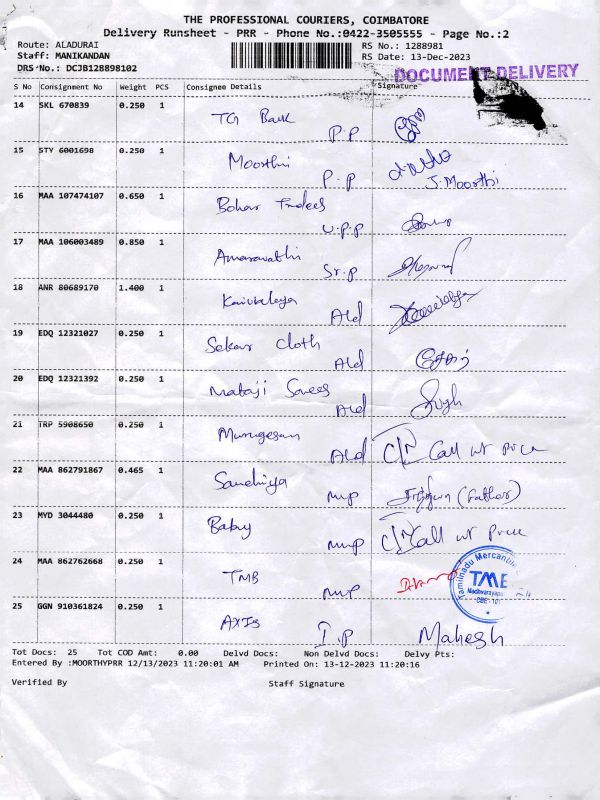 THE PROFESSIONAL COURIERS, COIMBATORE
Delivery Runsheet - PRR - Phone No.:0422-3505555 - Page No.:2
Route: ALADURAI RS No.: 1288981
Staff: MANIKANDAN RS Date: 13-Dec-2023
DRS No.: DCJB128898102 DOCUMENT DELIVERY
S No Consignment No Weight PCS Consignee Details Signature
14 SKL 670839 0.250 1 TG Bank P.P
15 STY 6001698 0.250 1 Moorthi P.P J.Moorthi
16 MAA 107474107 0.650 1 U.P.P
17 MAA 106003489 0.850 1 Amaravathi Sr.P
18 ANR 80689170 1.400 1 Ald
19 EDQ 12321027 0.250 1 Sekar Cloth Ald சேகர்
20 EDQ 12321392 0.250 1 Mataji Ald Singh
21 TRP 5908650 0.250 1 Murugesan Ald C/N Call
22 MAA 862791867 0.465 1 Sandhiya mup (Father)
23 MYD 3044480 0.250 1 Baby mup Call
24 MAA 862762668 0.250 1 TMB mup Tamilnadu Mercantile TMB
25 GGN 910361824 0.250 1 AXIS I.P Mahesh
Tot Docs: 25 Tot COD Amt: 0.00 Delvd Docs: Non Delvd Docs: Delvy Pts:
Entered By :MOORTHYPRR 12/13/2023 11:20:01 AM Printed On: 13-12-2023 11:20:16
Verified By Staff Signature